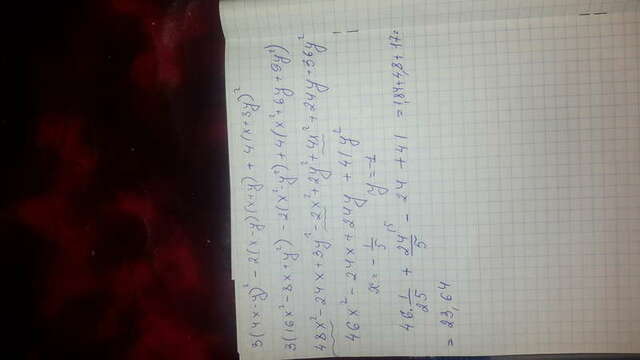 3(4x-y)² - 2(x-y)(x+y) + 4(x+3y)²
3(16x²-8x+y²) - 2(x²-y²) + 4(x²+6y+9y²)
48x²-24x+3y²-2x²+2y²+4x²+24y+36y²
46x²-24x+24y+41y²
x=-1/5 y=-1
46·1/25 + 24/5 - 24 + 41 = 1,84+4,8+17=
= 23,64